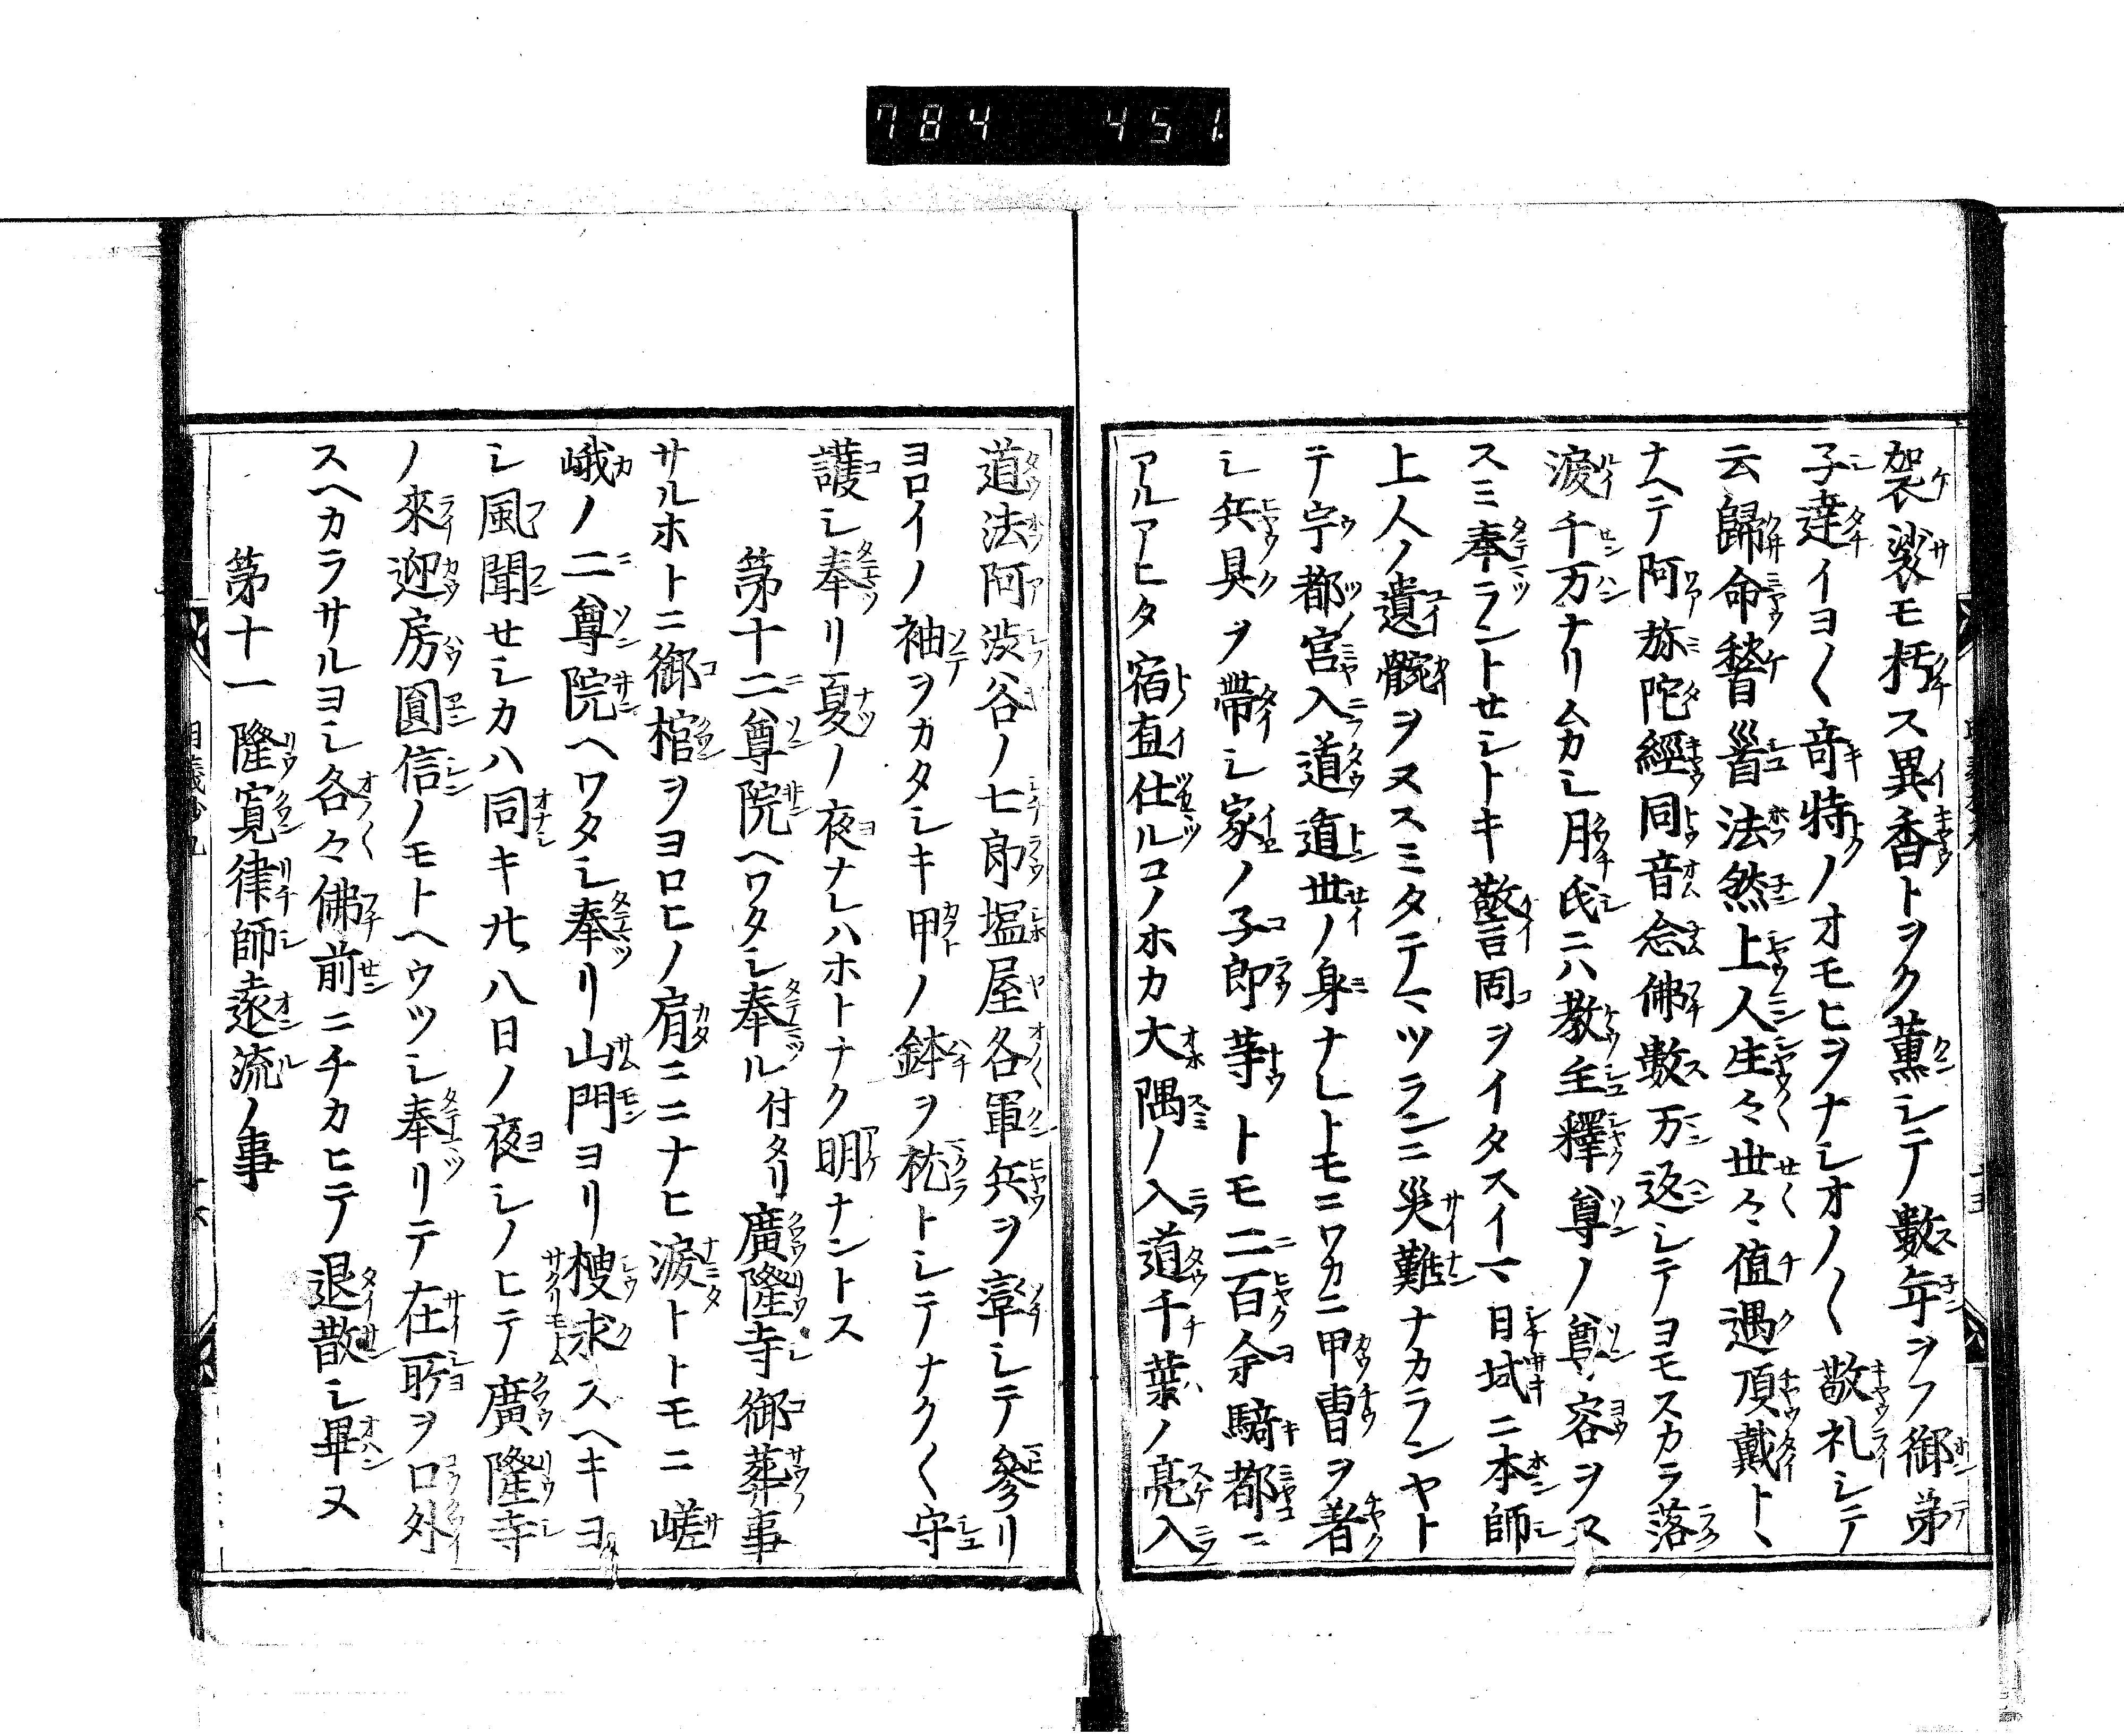 784 451
袈裟モ朽ス異香トヲク薫シテ數年ヲフ御弟
子達イヨ〱竒特ノオモヒヲナシオノ〱敬礼シテ
云歸命稽首法然上人生々世々値遇頂戴ト、
ナヘテ阿弥陀經同音念佛數万返シテヨモスカラ落
涙千万ナリムカシ月氏ニハ教主釋尊ノ尊容ヲス
スミ奉ラントセシトキ警固ヲイタスイマ日域ニ本師
上人ノ遺骸ヲヌスミタテマツランニ災難ナカランヤト
テ宇都宮入道遁世ノ身ナレトモニワカニ甲冑ヲ著
シ兵具ヲ帶シ家ノ子郎等トモ二百余騎都ニ
アルアヒタ宿直仕ルコノホカ大隅ノ入道千葉ノ亮入
道法阿渋谷ノ七郎塩屋各軍兵ヲ率シテ參リ
ヨロイノ袖ヲカタシキ甲ノ鉢ヲ枕トシテナク〱守
護シ奉リ夏ノ夜ナレハホトナク明ナントス
第十二尊院ヘワタシ奉ル付タリ廣隆寺御葬事
サルホトニ御棺ヲヨロヒノ肩ニニナヒ涙トトモニ嵯
峨ノ二尊院ヘワタシ奉リ山門ヨリ捜求スヘキヨ
シ風聞セシカハ同キ廿八日ノ夜シノヒテ廣隆寺
ノ來迎房圓信ノモトヘウツシ奉リテ在所ヲ口外
スヘカラサルヨシ各々佛前ニチカヒテ退散シ畢ヌ
第十一隆寛律師遠流ノ事